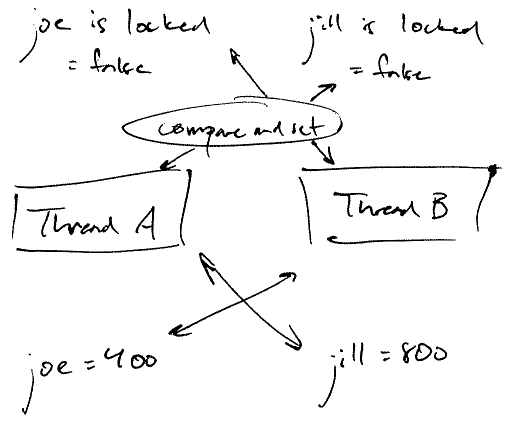 joe is locked
= false
jill is locked
= false
compare and set
Thread A
Thread B
joe = 400
jill = 800